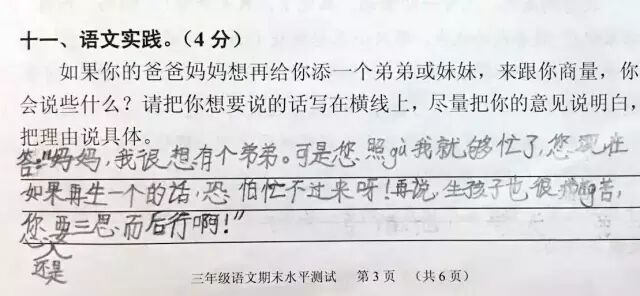 十一、语文实践。(4分)
如果你的爸爸妈妈想再给你添一个弟弟或妹妹，来跟你商量，你
会说些什么？请把你想要说的话写在横线上，尽量把你的意见说明白，
把理由说具体。
答："妈妈，我很想有个弟弟。可是您照gù我就够忙了，您现在
如果再生一个的话，恐怕忙不过来呀！再说，生孩子也很痛苦，
您要三思而后行啊！"
还是
三年级语文期末水平测试 第3页 (共6页)